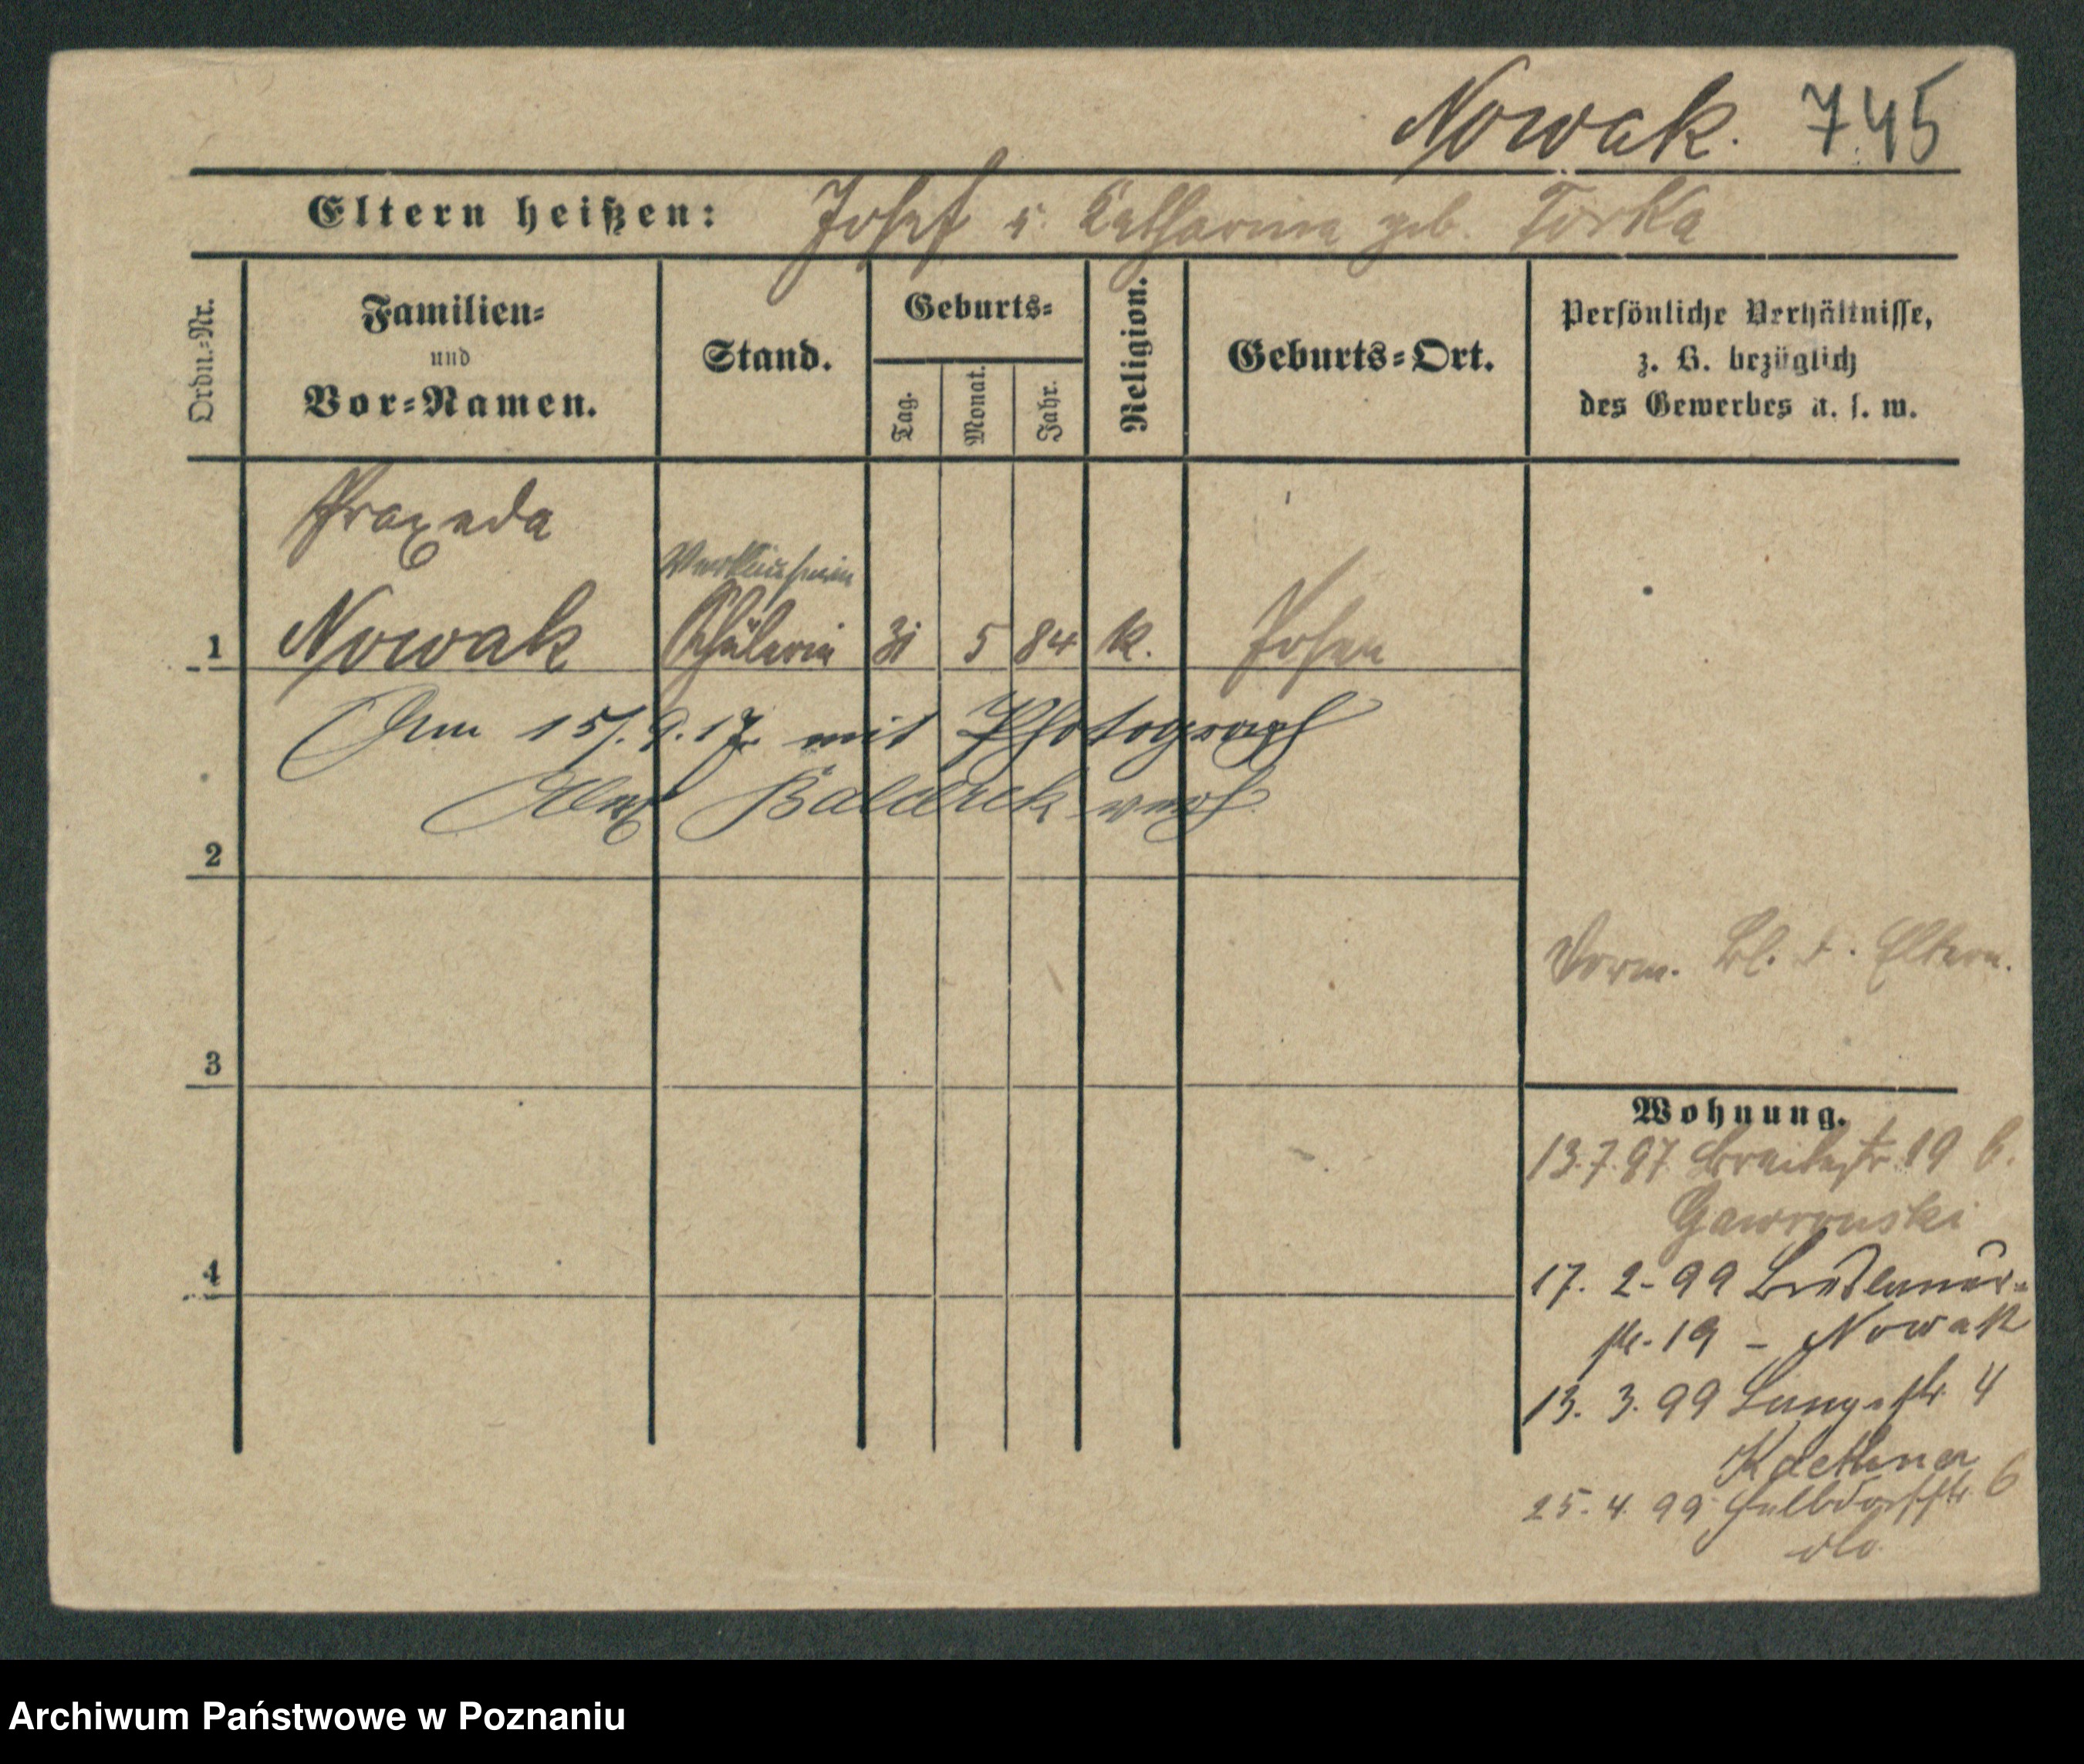 Nowak. 745
Eltern heißen: Josef u. Catharina geb. Torka
Ordn.-Nr.
Familien-
und
Vor-Namen.
Stand.
Geburts-
Tag.
Monat.
Jahr.
Religion.
Geburts-Ort.
Persönliche Verhältnisse,
z. B. bezüglich
des Gewerbes u. s. w.
Praxeda
Verkäuferin
1 Nowak Schülerin 31 5 84 k. Posen
Am 15/.9.17. mit Photograph
Alex verh.
2
Vorm. bl. d. Eltern.
3
Wohnung.
13.7.97 Breitestr. 19 b.
Gawronski
4
17. 2-99
str. 19 - Nowak
13. 3. 99 Langestr. 4
25. 4. 99 Halbdorfstr. 6
dto
Archiwum Państwowe w Poznaniu